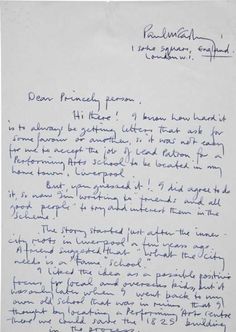 Paul McCartney
1 Soho Square, England
London W.1.
Dear Princely person,
Hi there! I know how hard it
is to always be getting letters that ask for
some favour or another, so it was not easy
for me to accept the job of Lead Patron for a
Performing Arts School to be located in my
home town, Liverpool
But, you guessed it! I did agree to do
it, so now I'm writing to friends and 'all
good people' to try and interest them in the
scheme!
The story started just after the inner-
city riots in Liverpool a few years ago.
A friend suggested that 'What the city
needs is a 'Fame' School.'
I liked the idea as a possible positive
focus for local and overseas kids, but it
was only later when I went back to my
own old school that was in ruins, that I
thought by locating a Performing Arts centre
there we could save the 1825 building
in the process.